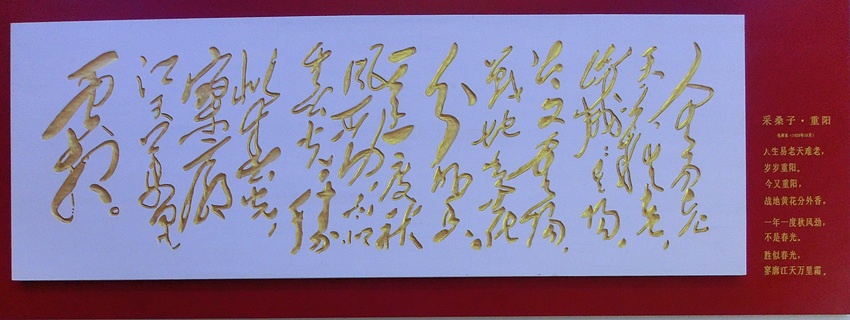 人生易老
天难老，
岁岁重阳。
今又重阳，
战地黄花
分外香。
一年一度秋
风劲，不似
春光。胜
似春光，
寥廓
江天万里
霜。
采桑子·重阳
毛泽东（1929年10月）
人生易老天难老，
岁岁重阳。
今又重阳，
战地黄花分外香。
一年一度秋风劲，
不是春光。
胜似春光，
寥廓江天万里霜。